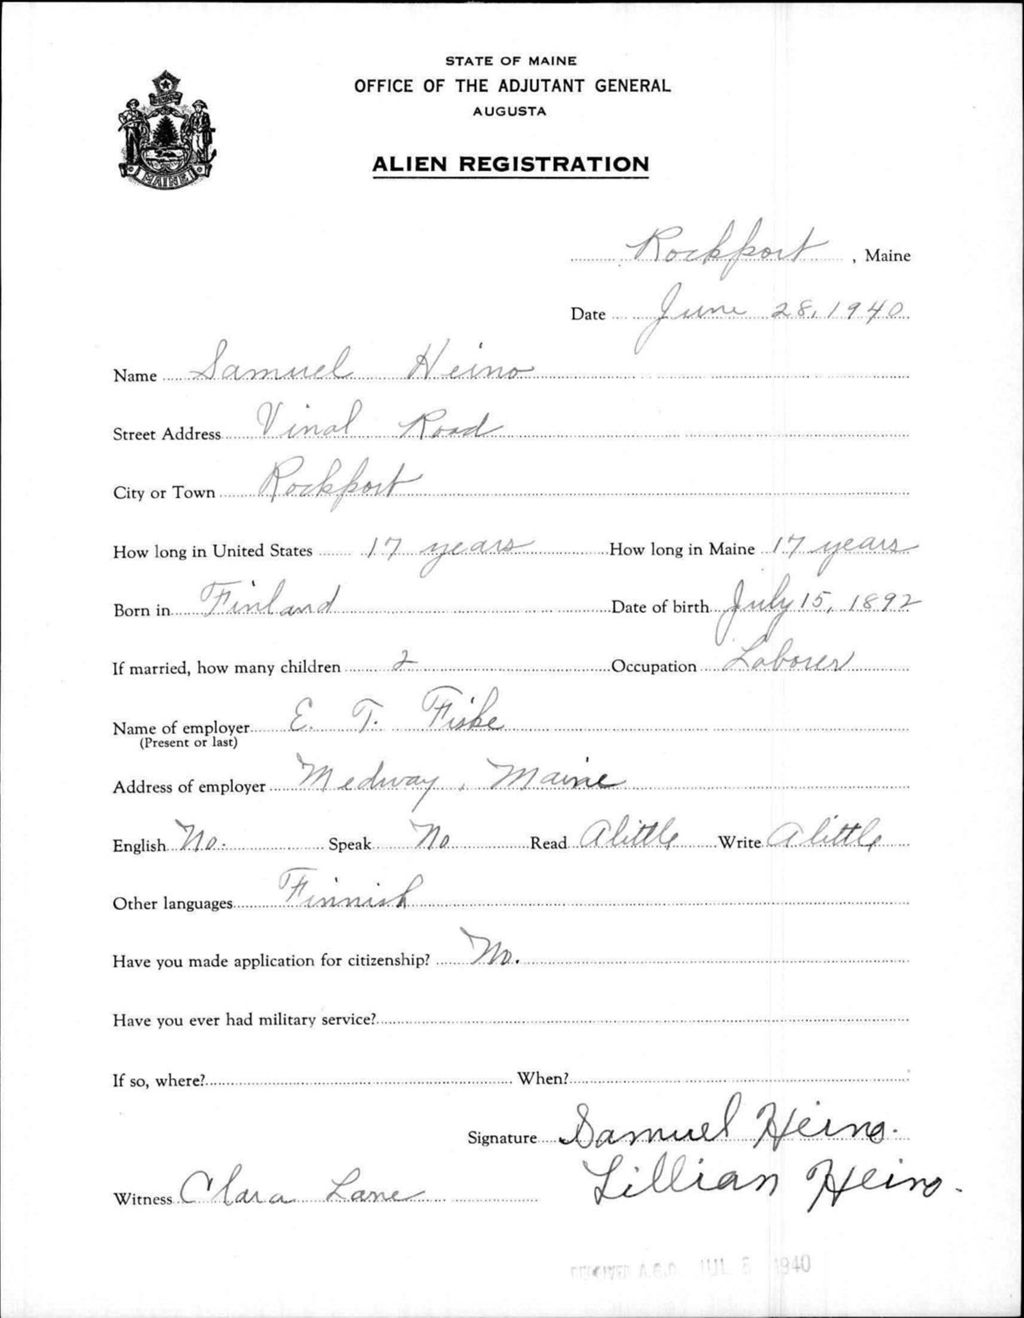 STATE OF MAINE
OFFICE OF THE ADJUTANT GENERAL
AUGUSTA
ALIEN REGISTRATION
MAINE
Rockport, Maine
Date June 28, 1940
Name Samuel Heino
Street Address Vinal Road
City or Town Rockport
How long in United States 17 years How long in Maine 17 years
Born in Finland Date of birth July 15, 1892
If married, how many children 2 Occupation Laborer
Name of employer E. T. Fiske
(Present or last)
Address of employer Medway, Maine
English No. Speak No Read A little Write A little
Other languages Finnish
Have you made application for citizenship? No.
Have you ever had military service?
If so, where? When?
Signature Samuel Heino.
Witness Clara Lane Lillian Heino.
RECEIVED A.G.O. JUL 1940